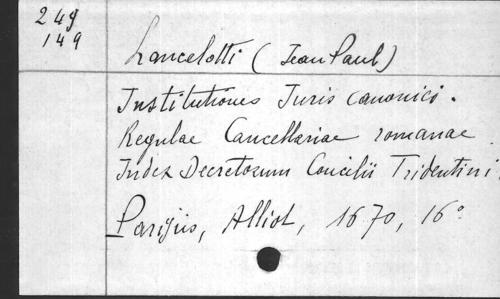 249
149
Lancelotti (Jean Paul)
Institutiones Juris canonici.
Regulae Cancellariae romanae
Index Decretorum Concilii Tridentini.
Parisiis, Alliot, 1670, 16°